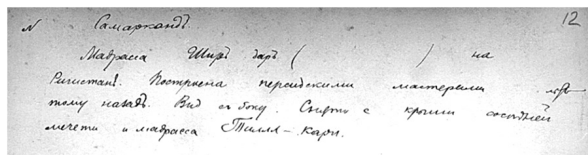 N Самаркандъ. 12
Мадраса Ширъ даръ ( ) на
Ригистанѣ. Построена персидскими мастерами
тому назадъ. Вид съ боку. Снято с крыши соседней
мечети и мадраса Тилля-Кари.